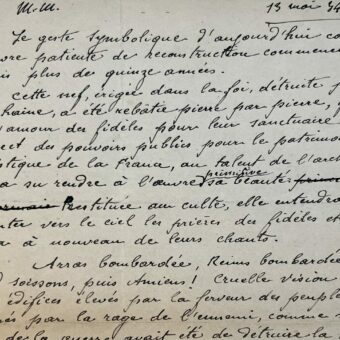 M.M. 13 mai 34
Le geste symbolique d'aujourd'hui co
vre patiente de reconstruction commenc
is plus de quinze années.
Cette nef, érigée dans la foi, détruite p
haine, a été rebâtie pierre par pierre, g
'amour des fidèles pour leur sanctuaire
ect des pouvoirs publics pour le patrimo
stique de la France, au talent de l'arch
a su rendre à l'œuvre sa primitive beauté
Restituée au culte, elle entendra
nter vers le ciel les prières des fidèles et
a à nouveau de leurs chants.
Arras bombardée, Reims bombardée
soissons, puis Amiens! Cruelle vision
édifices élevés par la ferveur des peuple
és par la rage de l'ennemi, comme s
de la guerre avait été de détruire la